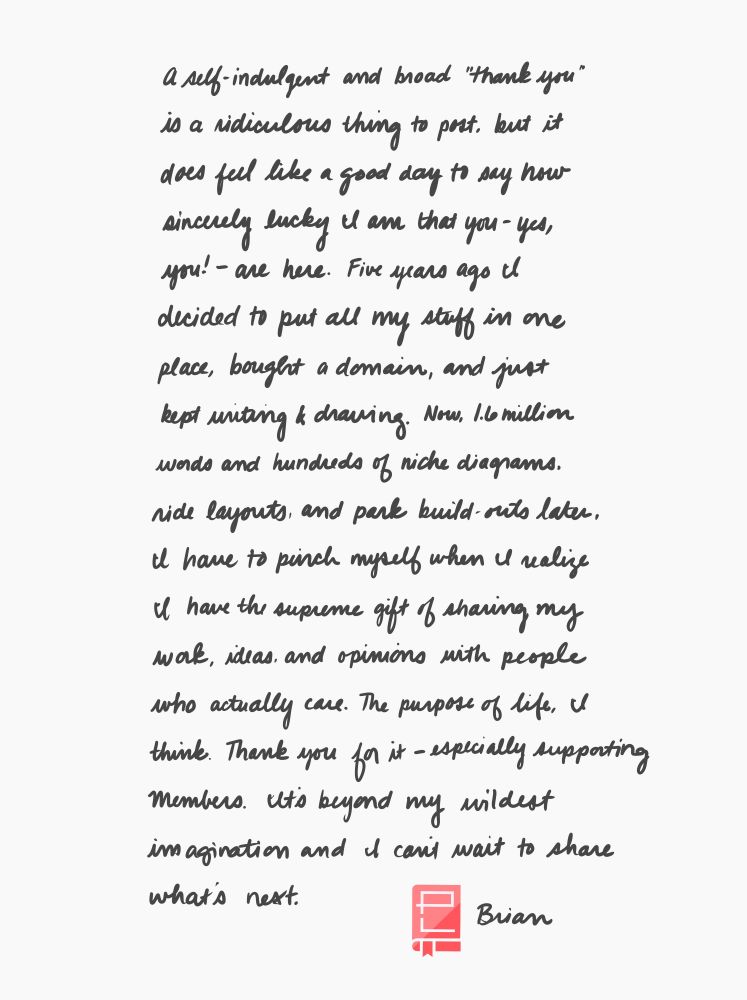 A self-indulgent and broad "thank you"
is a ridiculous thing to post, but it
does feel like a good day to say how
sincerely lucky I am that you - yes,
you! - are here. Five years ago I
decided to put all my stuff in one
place, bought a domain, and just
kept writing & drawing. Now, 1.6 million
words and hundreds of niche diagrams,
ride layouts, and park build-outs later,
I have to pinch myself when I realize
I have the supreme gift of sharing my
work, ideas, and opinions with people
who actually care. The purpose of life, I
think. Thank you for it - especially supporting
Members. It's beyond my wildest
imagination and I can't wait to share
what's next.
Brian